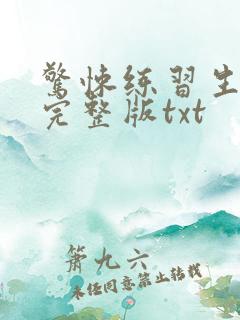 驚悚练習生
完整版txt
萧九六
未经同意禁止转载